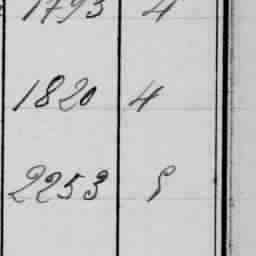 1793 4
1820 4
2253 9